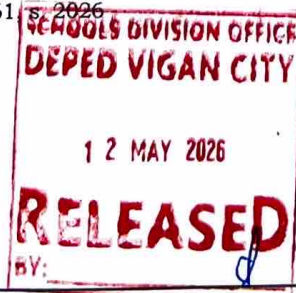 51, s. 2026
SCHOOLS DIVISION OFFICE
DEPED VIGAN CITY
1 2 MAY 2026
RELEASED
BY: